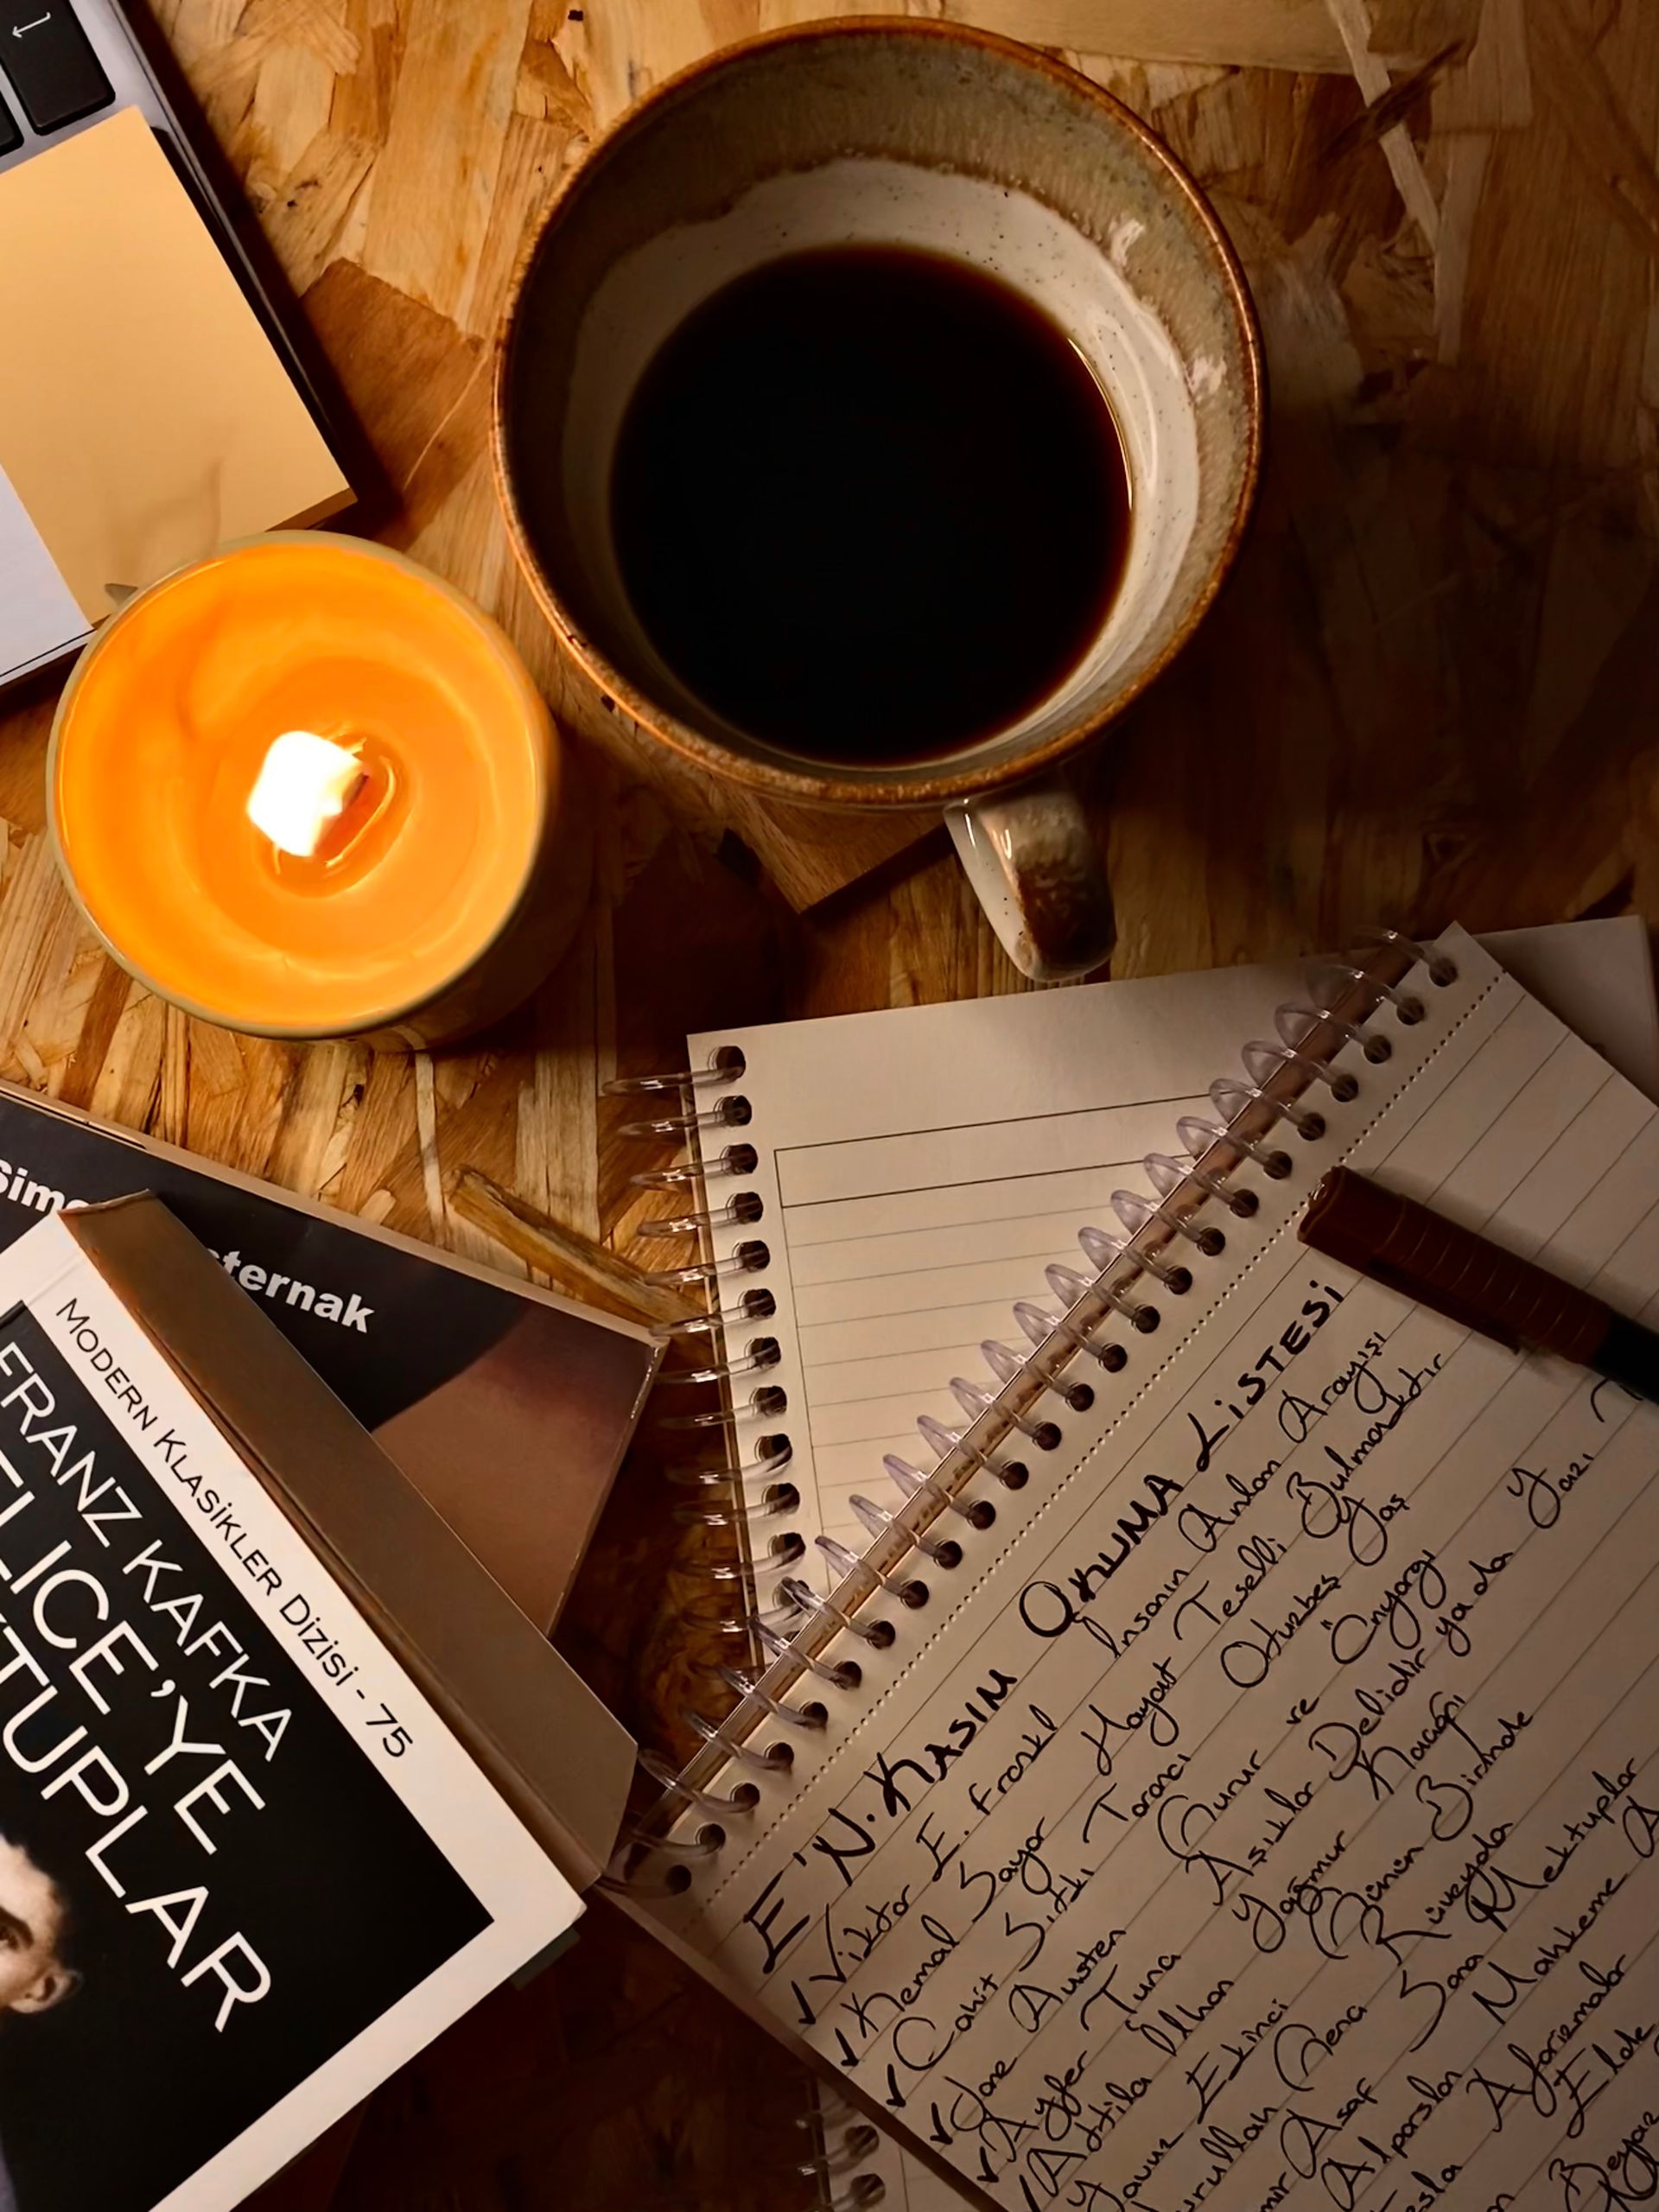 Sim
ternak
MODERN KLASİKLER DİZİSİ - 75
FRANZ KAFKA
ELICE'YE
KTUPLAR
E'N. KASIM OKUMA LİSTESİ
✓ Viktor E. Frankl İnsanın Anlam Arayışı
✓ Kemal Sayar Hayat Teselli Bulmaktır
✓ Cahit Sıtkı Tarancı Otuzbeş Yaş
✓ Jane Austen Gurur ve Önyargı
✓ Ayfer Tunç Aşıklar Delidir ya da Yazı
✓ Attila İlhan Yağmur Kaçağı
Yavuz Ekinci Günün Birinde
urullah Genç Rüveyda
mir Asaf Sana Mektuplar
Alparslan Mahkeme A
esla Aforizmalar
Elde
Beyaz